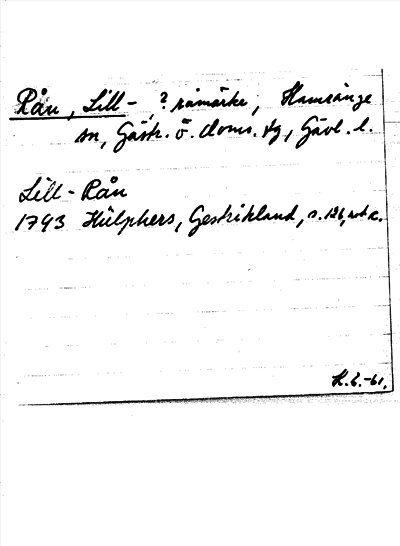 Rån, Lill-, ? råmärke, Hamrånge
sn, Gästr. ö. doms. tg, Gävl. l.
Lill-Rån
1793 Hülphers, Gestrikland, s. 126, not c.
H.E.-61.